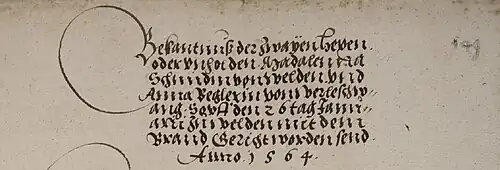 Bekantnuß der zwayen hexen
oder vnholden Madalen tea
Schmidin von velden vnd
Anna Keglerin vom verleschw-
ang. So vff den 26 tag Janu-
arri zu velden mit dem
Brand Gericht worden send.
Anno. 1564.